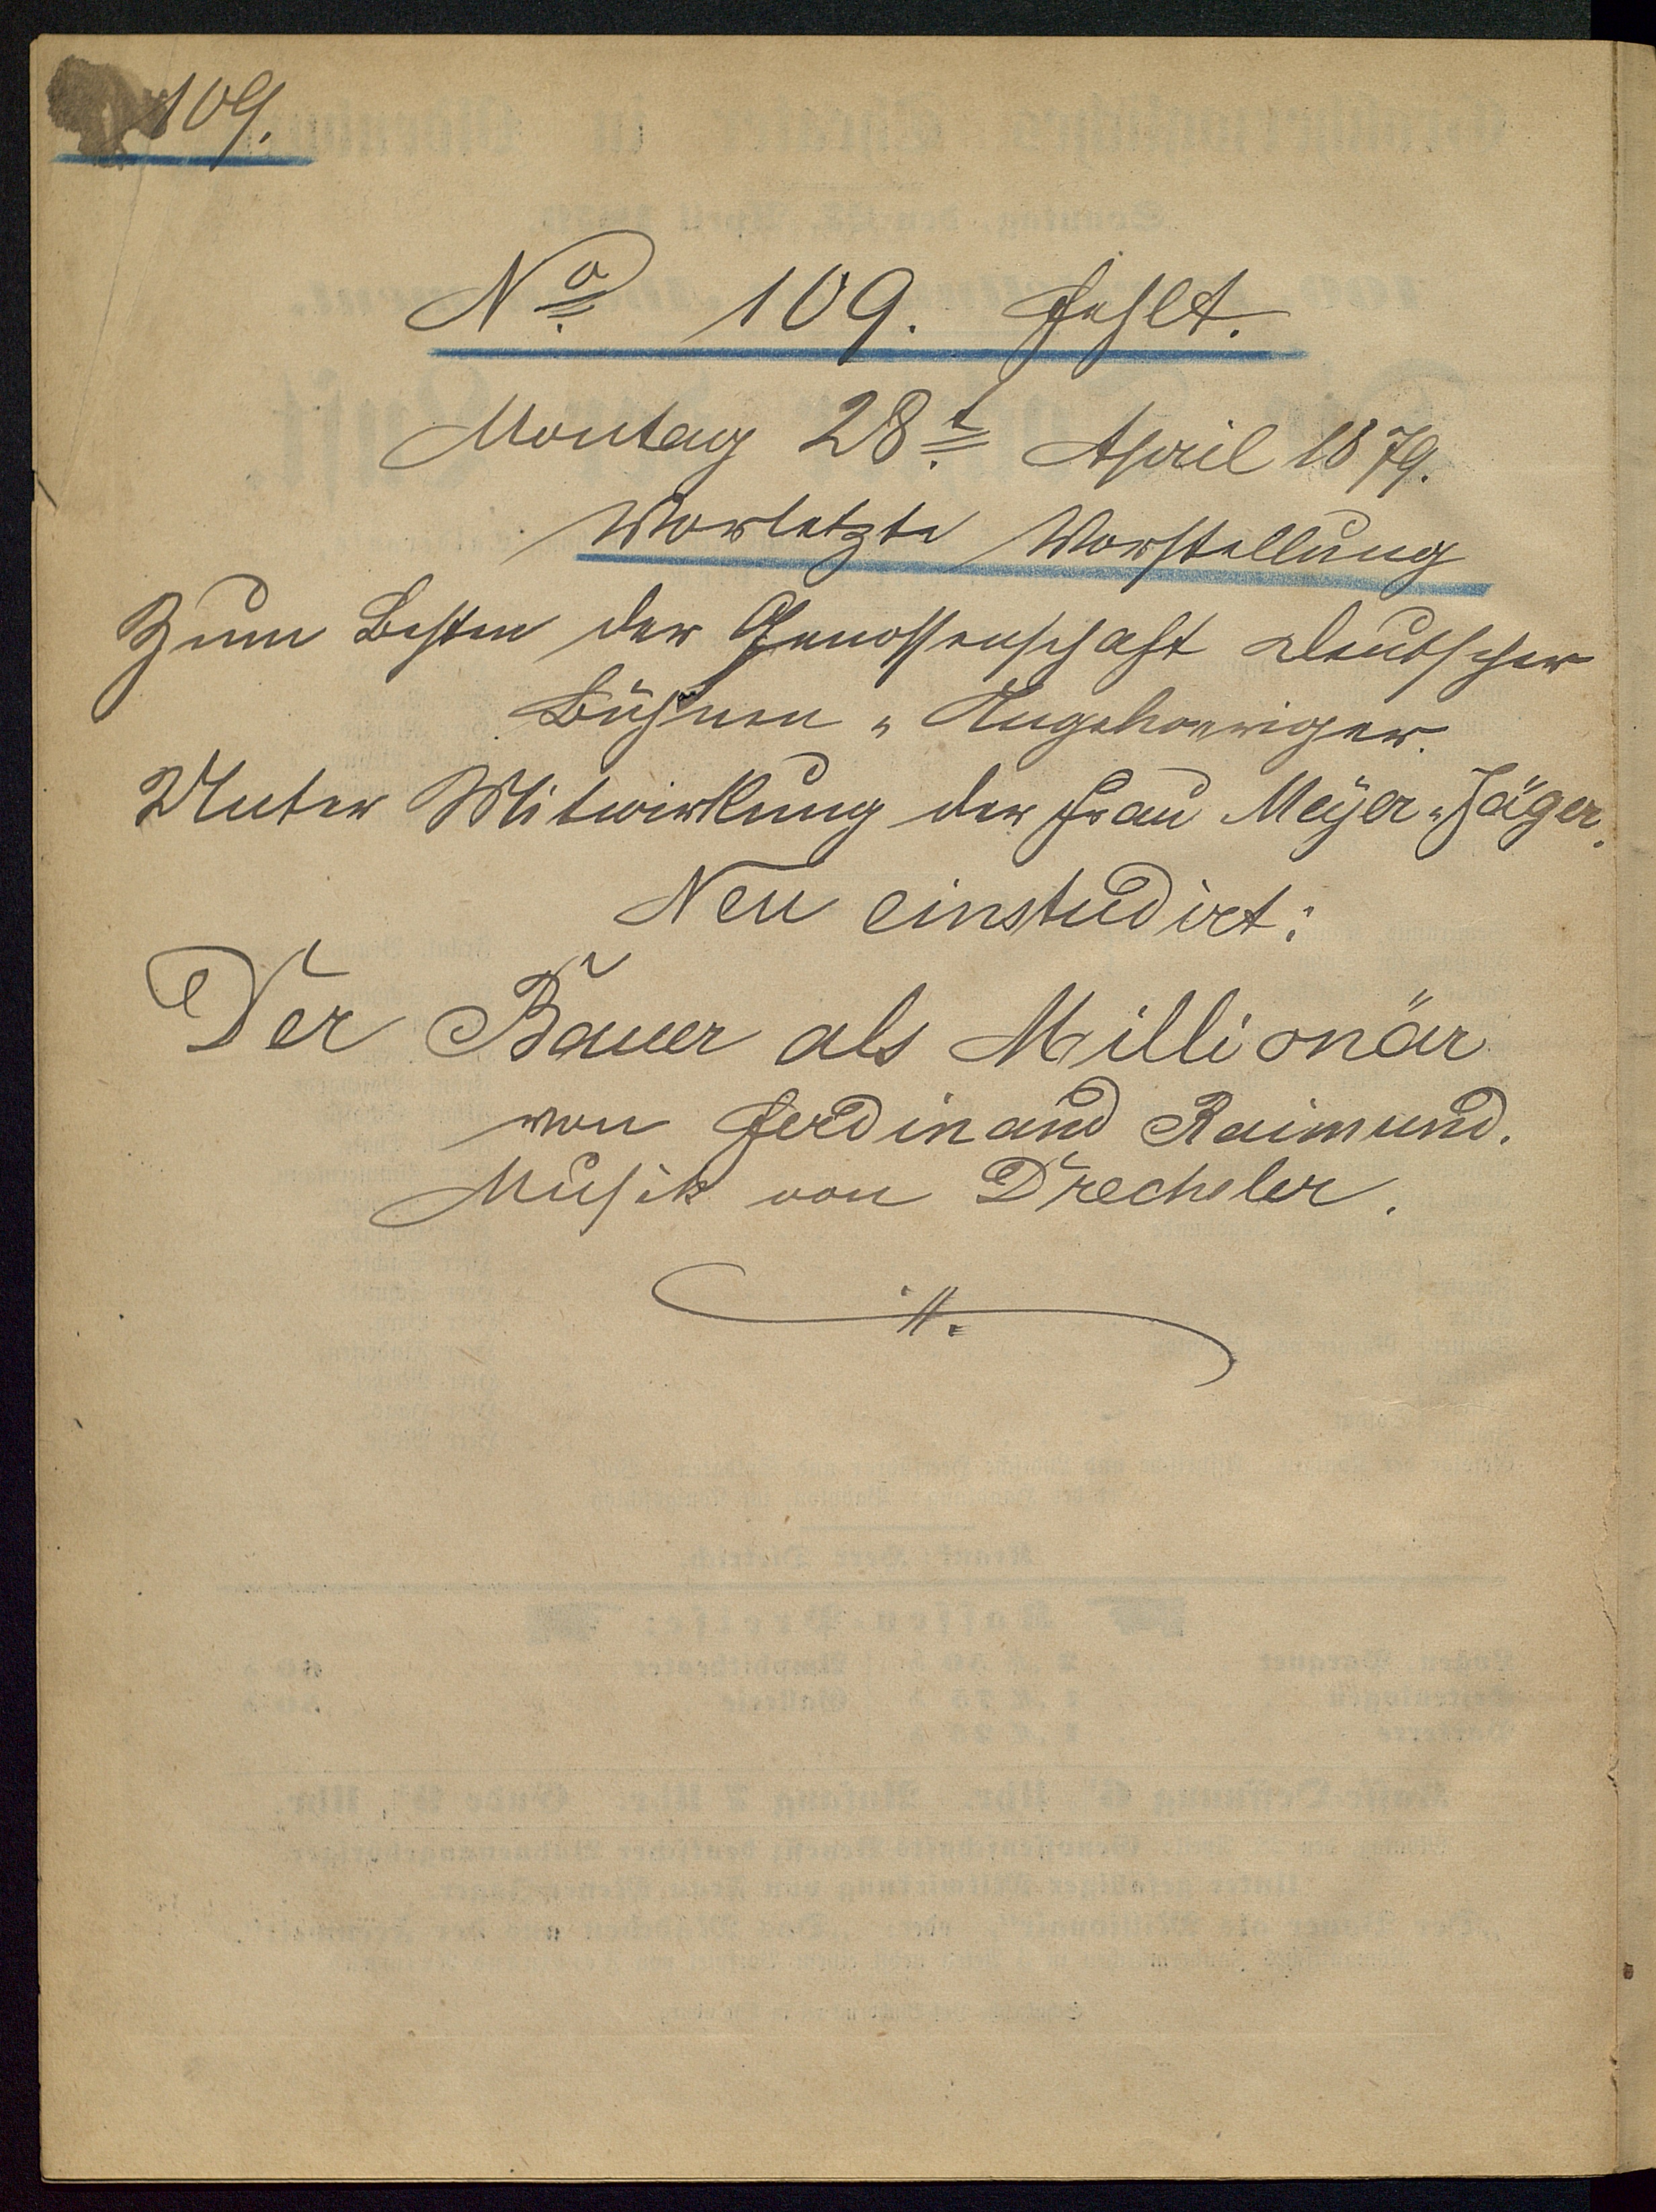 109.
No 109. fehlt.
Montag 28t April 1879.
Vorletzte Vorstellung
Zum Besten der Genossenschaft Deutscher
Bühnen-Angehoeriger.
Unter Mitwirkung der Frau Meyer-Jäger.
Neu einstudirt:
Der Bauer als Millionär
von Ferdinand Raimund.
Musik von Drechsler.